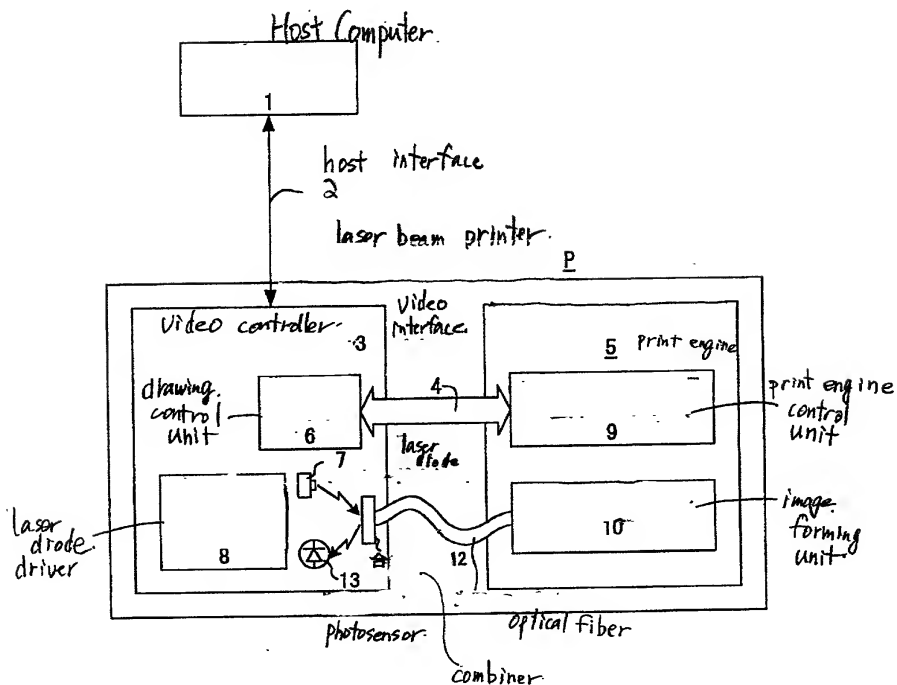 Host Computer.
1
host interface
2
laser beam printer.
P
Video controller.
3
Video
interface.
5
print engine
drawing.
control
unit
6
4
9
print engine
control
unit
7
laser
diode
laser
diode.
driver
8
13
12
10
image.
forming
unit
photosensor.
Optical fiber
combiner